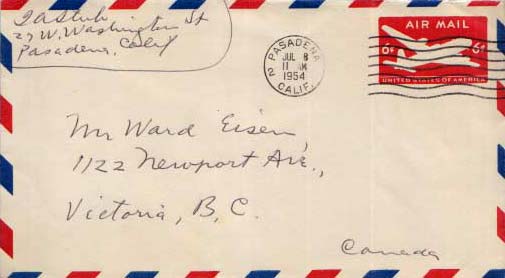 27 W. Washington St
Pasadena, Calif
PASADENA
2
JUL 8
11 AM
1954
CALIF.
AIR MAIL
6¢ 6¢
UNITED STATES OF AMERICA
Mr Ward Eisen,
1122 Newport Ave.,
Victoria, B.C.
Canada